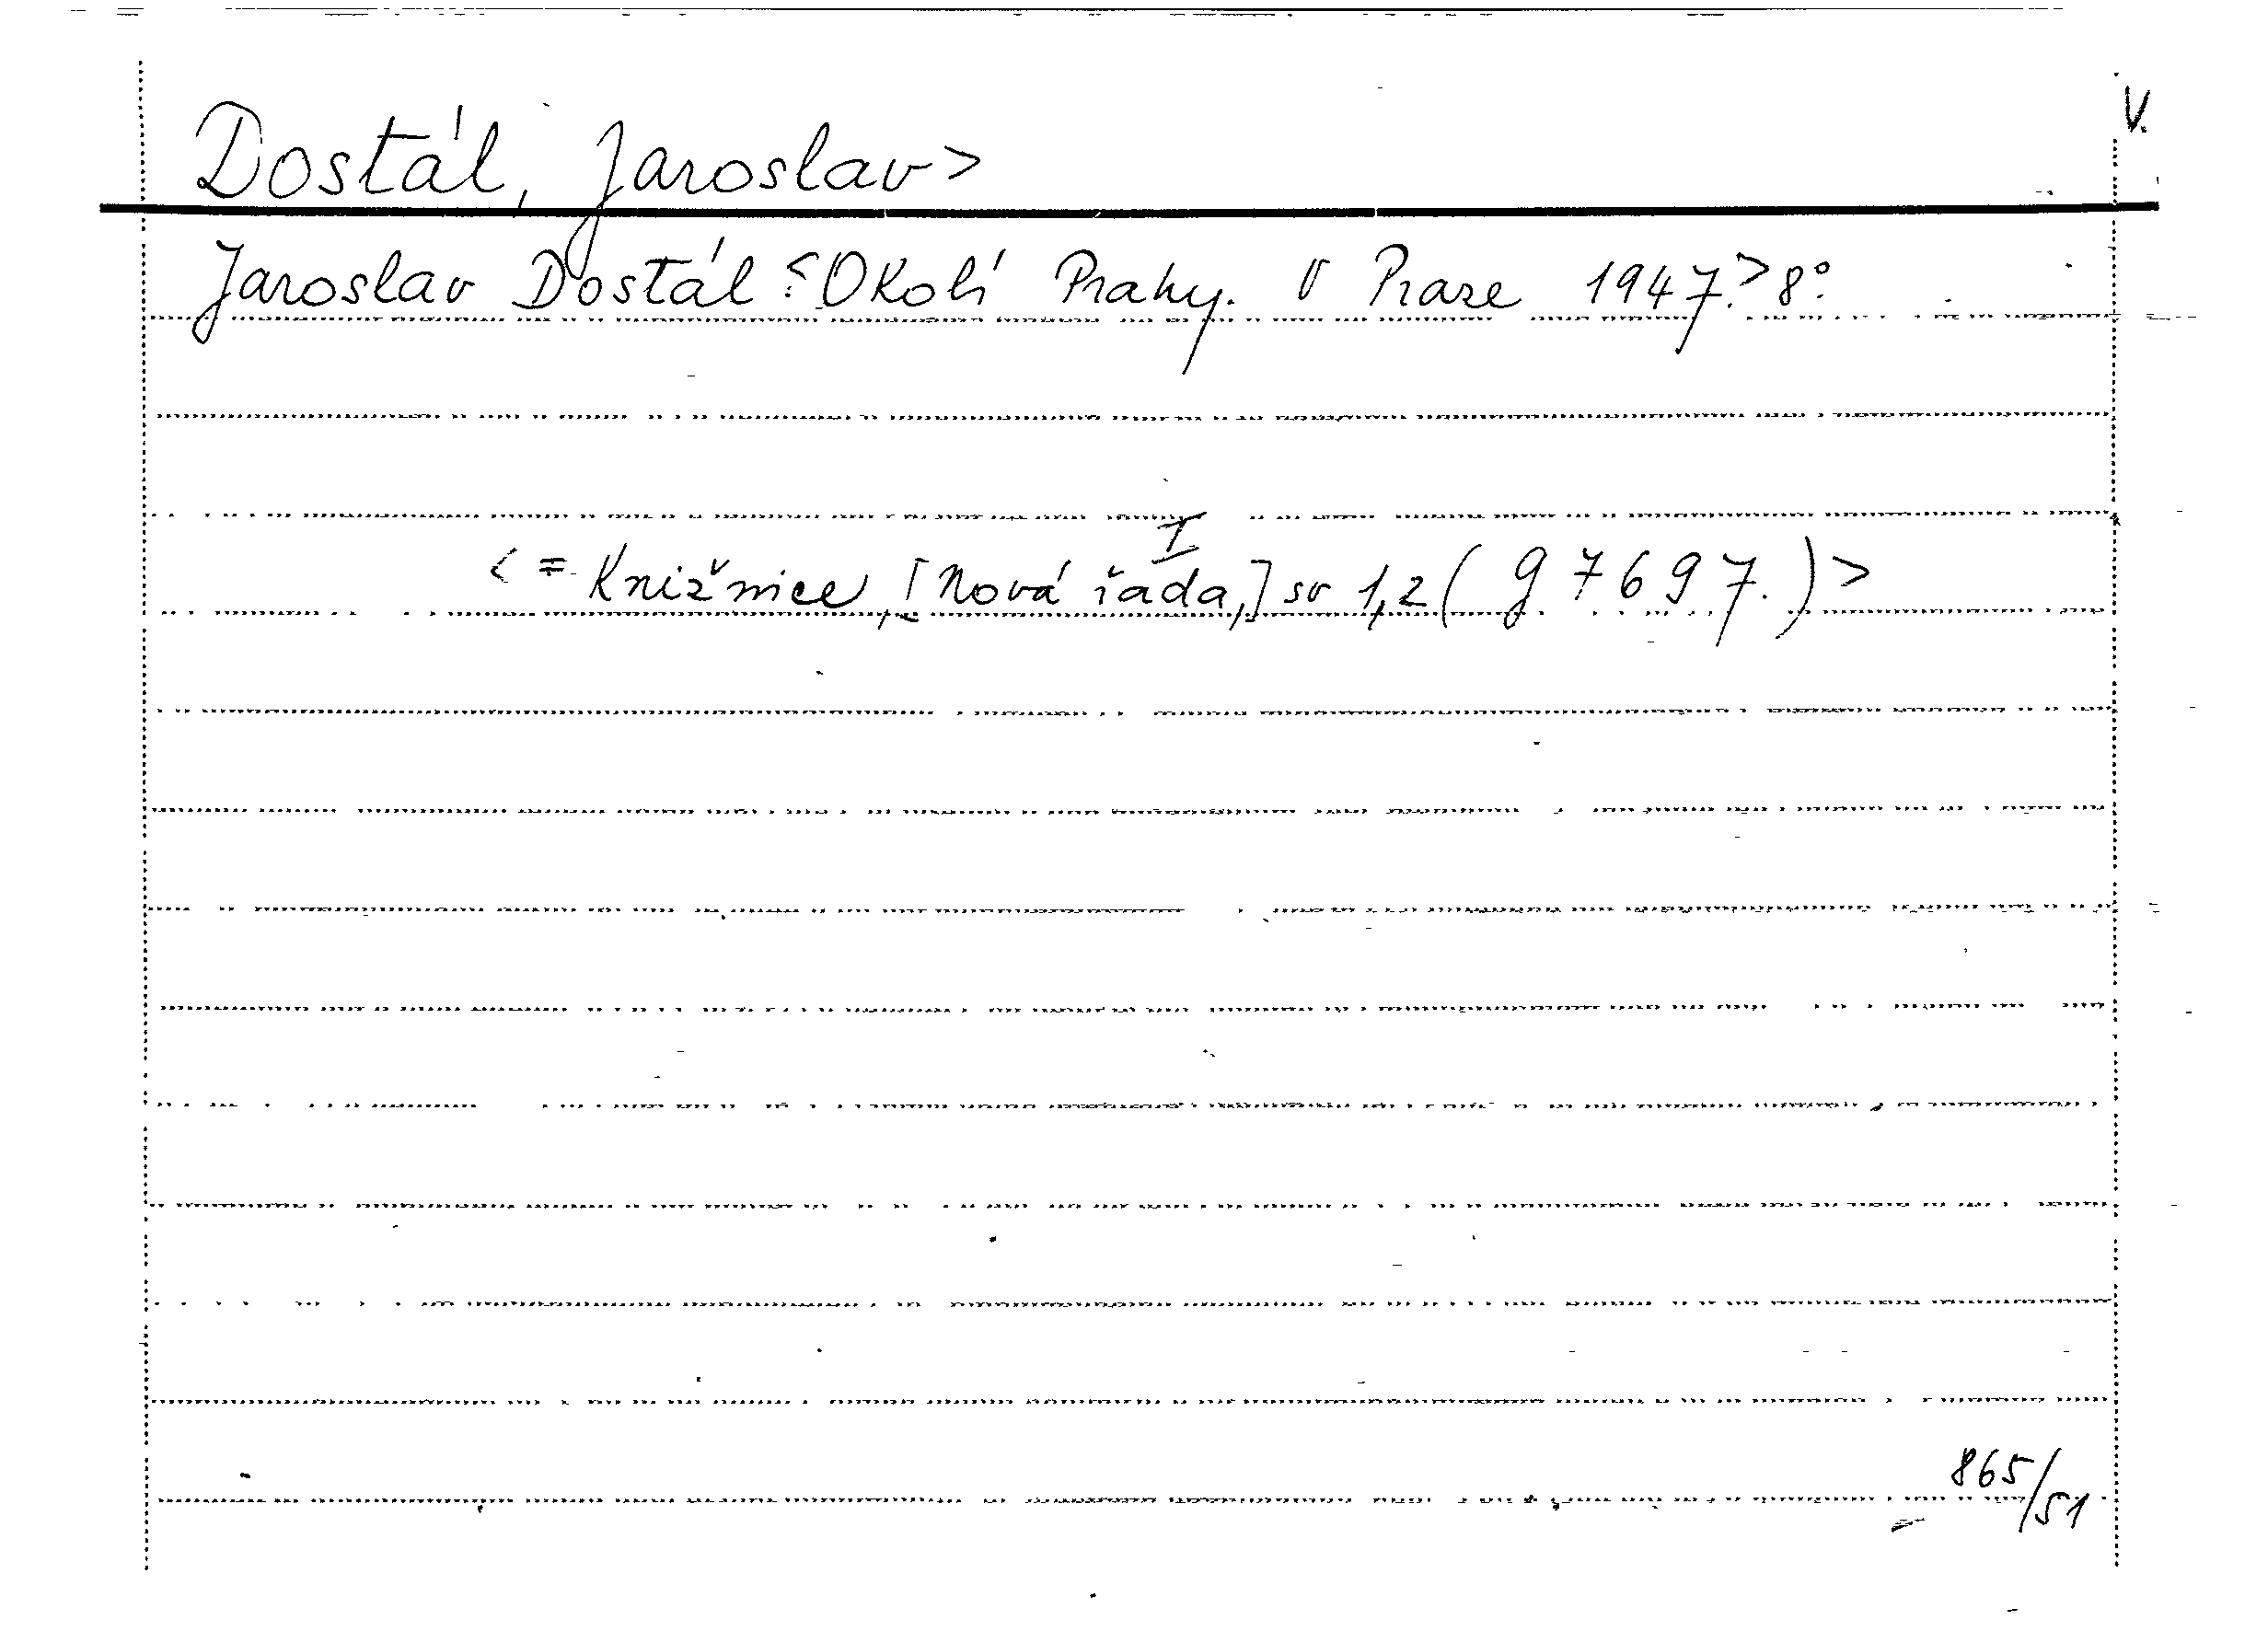 V.
Dostál, Jaroslav>
Jaroslav Dostál <Okolí Prahy. V Praze 1947.> 8°.
I
<= Knižnice, [Nová řada,] sv 1,2 (g 7697.)>
865/51